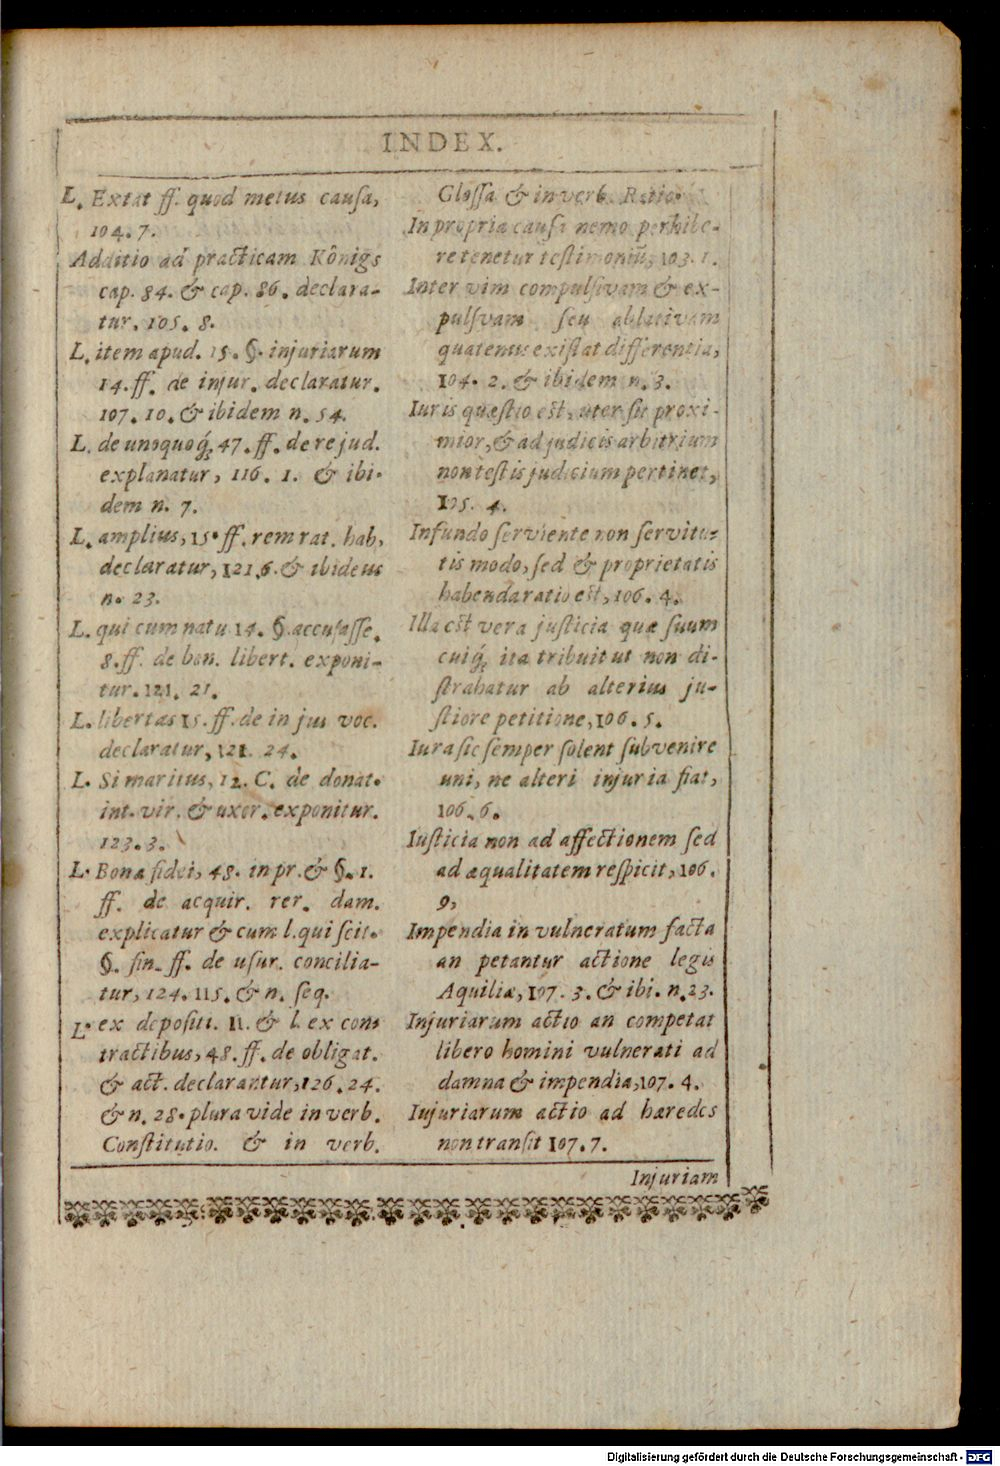 INDEX.
L. Extat ff. quod metus causa,
104. 7.
Additio ad practicam Königs
cap. 84. & cap. 86. declara-
tur, 105. 8.
L. item apud. 15. §. injuriarum
14. ff. de injur. declaratur.
107. 10. & ibidem n. 54.
L. de unoquoq́; 47. ff. de re jud.
explanatur, 116. 1. & ibi-
dem n. 7.
L. amplius, 15. ff. rem rat. hab,
declaratur, 121. 6. & ibideus
n. 23.
L. qui cum natu 14. §. accusasse.
8. ff. de bon. libert. exponi-
tur. 121. 21.
L. libertas 15. ff. de in jus voc.
declaratur, 121. 24.
L. Si maritus, 12. C. de donat.
int. vir. & uxor. exponitur.
123. 3.
L. Bona fidei, 48. in pr. & §. 1.
ff. de acquir. rer. dam.
explicatur & cum l. qui scit.
§. fin. ff. de usur. concilia-
tur, 124. 115. & n. seq.
L. ex depositi. 11. & l. ex cons
tractibus, 48. ff. de obligat.
& act. declarantur, 126. 24.
& n. 28. plura vide in verb.
Constitutio. & in verb.
Glossa & in verb. Ratio.
In propria causa nemo perhibe-
re tenetur testimoniũ, 103. 1.
Inter vim compulsivam & ex-
pulsvam seu ablativam
quatenus existat differentia,
104. 2. & ibidem n. 3.
Iuris quæstio est, uter sit proxi-
mior, & ad judicis arbitrium
non testis judicium pertinet,
105. 4.
In fundo serviente non servitu-
tis modo, sed & proprietatis
habenda ratio est, 106. 4.
Illa est vera justicia quæ suum
cuiq́; ita tribuit ut non di-
strahatur ab alterius ju-
stiore petitione, 106. 5.
Iura sic semper solent subvenire
uni, ne alteri injuria fiat,
106. 6.
Iusticia non ad affectionem sed
ad æqualitatem respicit, 106.
9,
Impendia in vulneratum facta
an petantur actione legis
Aquiliæ, 107. 3. & ibi. n. 23.
Injuriarum actio an competat
libero homini vulnerati ad
damna & impendia, 107. 4.
Iujuriarum actio ad hæredes
non transit 107. 7.
Injuriam
Digitalisierung gefördert durch die Deutsche Forschungsgemeinschaft - DFG